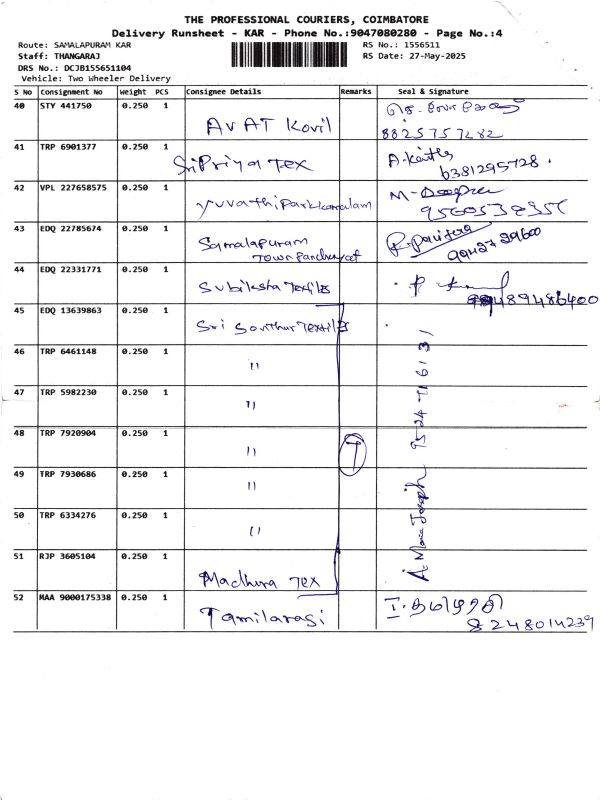 THE PROFESSIONAL COURIERS, COIMBATORE
Delivery Runsheet - KAR - Phone No.:9047080280 - Page No.:4
Route: SAMALAPURAM KAR
RS No.: 1556511
Staff: THANGARAJ
RS Date: 27-May-2025
DRS No.: DCJB155651104
Vehicle: Two Wheeler Delivery
S No Consignment No Weight PCS Consignee Details Remarks Seal & Signature
40 STY 441750 0.250 1 AVAT Kovil
8825757282
41 TRP 6901377 0.250 1 Sri Priya Tex
6381295728.
42 VPL 227658575 0.250 1 yuvathiparkkamalam M-
43 EDQ 22785674 0.250 1 Samalapuram
Town Panchayat
9942729600
44 EDQ 22331771 0.250 1 Subiksha Textiles P
9489486400
45 EDQ 13639863 0.250 1 Sri Textiles
46 TRP 6461148 0.250 1 "
47 TRP 5982230 0.250 1 "
48 TRP 7920904 0.250 1 " T
49 TRP 7930686 0.250 1 "
50 TRP 6334276 0.250 1 "
51 RJP 3605104 0.250 1 Madhura Tex
A. Maria Joseph 9524716131
52 MAA 9000175338 0.250 1 Tamilarasi
8248014239